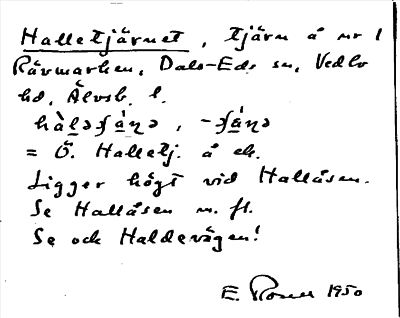 Halletjärnet, tjärn å nr 1
Rävmarken, Dals-Eds sn, Vedbo
hd, Älvsb. l.
= Ö. Halletj. å ek.
Ligger högt vid Hallåsen.
Se Hallåsen m. fl.
Se och Haldevägen!
E. Rosell 1950